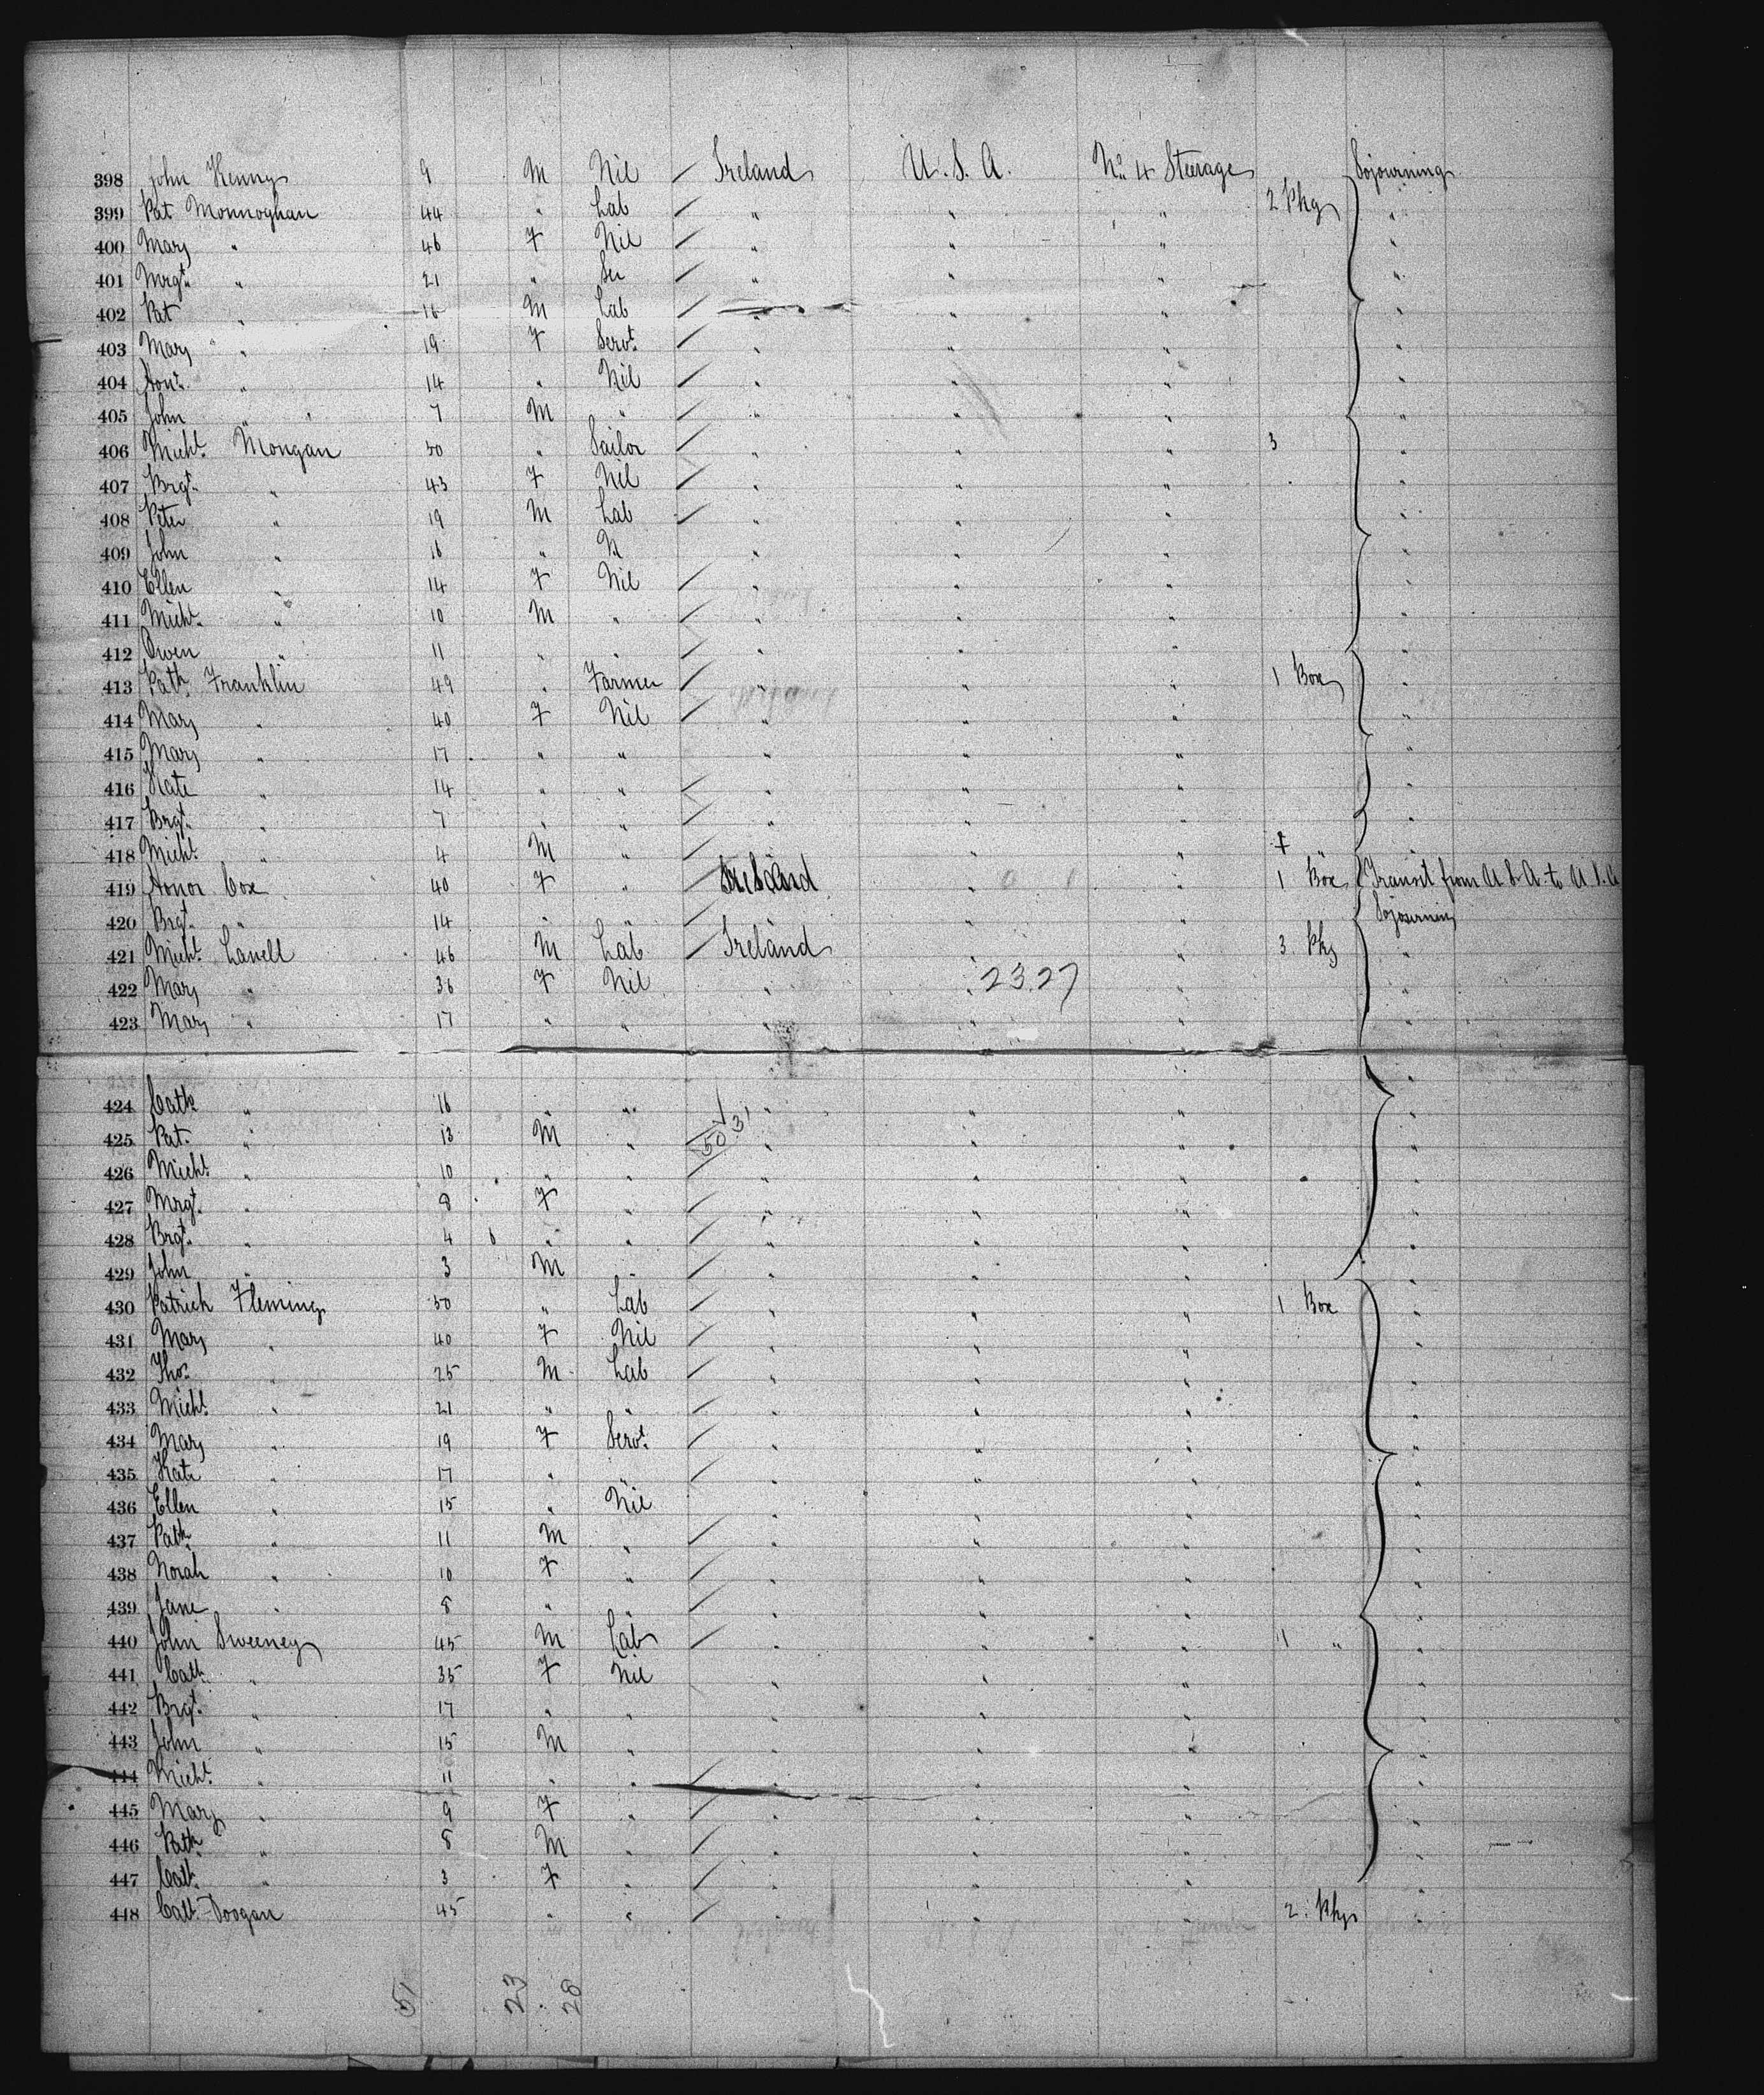 398 John Kenny 9 M Nil / Ireland U.S.A. No 4 Steerage Sojourning
399 Pat Monnoghan 44 " Lab / " " " 2 Pkgs "
400 Mary " 46 F Nil / " " " "
401 Mrgt. " 21 " Ser / " " " "
402 Pat " M Lab / " " " "
403 Mary " 19 F Servt. / " " " "
404 Honr. " 14 " Nil / " " " "
405 John " 7 M " / " " " "
406 Michl. Mongan 50 " Sailor / " " " 3 "
407 Brgt. " 43 F Nil / " " " "
408 Peter " 19 M Lab / " " " "
409 John " 16 " " " " "
410 Ellen " 14 F Nil / " " " "
411 Michl. " 10 M " / " " " "
412 Owen " 11 " " / " " " "
413 Patk Franklin 49 " Farmer / " " " 1 Box "
414 Mary " 40 F Nil / " " " "
415 Mary " 17 " " " " " "
416 Kate " 14 " " / " " " "
417 Brgt. " 7 " " / " " " "
418 Michl. " 4 M " / " " " "
419 Honor Cox 40 F " Ireland " " 1 Box Transit from U S A to U S A
420 Brgt. " 14 " " " " Sojourning
421 Michl. Lavell 46 M Lab / Ireland " " 3 Pkg "
422 Mary " 36 F Nil " " 23.27 " "
423 Mary " 17 " " " " " "
424 Cath " 16 " " " " " "
425 Pat. " 13 M " / 50 31 " " " "
426 Michl. " 10 " " / " " " "
427 Mrgt. " 8 F " / " " " "
428 Brgt. " 4 " " / " " " "
429 John " 3 M " / " " " "
430 Patrick Fleming 50 " Lab / " " " 1 Box "
431 Mary " 40 F Nil / " " " "
432 Thos. " 25 M Lab / " " " "
433 Michl. " 21 " " / " " " "
434 Mary " 19 F Servt. / " " " "
435 Kate " 17 " " / " " " "
436 Ellen " 15 " Nil " " " "
437 Patk " 11 M " / " " " "
438 Norah " 10 F " / " " " "
439 Jane " 8 " " / " " " "
440 John Sweeney 45 M Lab / " " " 1 " "
441 Cath. " 35 F Nil " " " "
442 Brgt. " 17 " " " " " "
443 John " 15 M " " " " "
444 Michl. " 11 " " / " " " "
445 Mary " 9 F " / " " " "
446 Patk " 8 M " / " " " "
447 Cath. " 3 F " / " " " "
448 Cath. Doogan 45 " " / " " " 2. Pkgs "
51 23 28